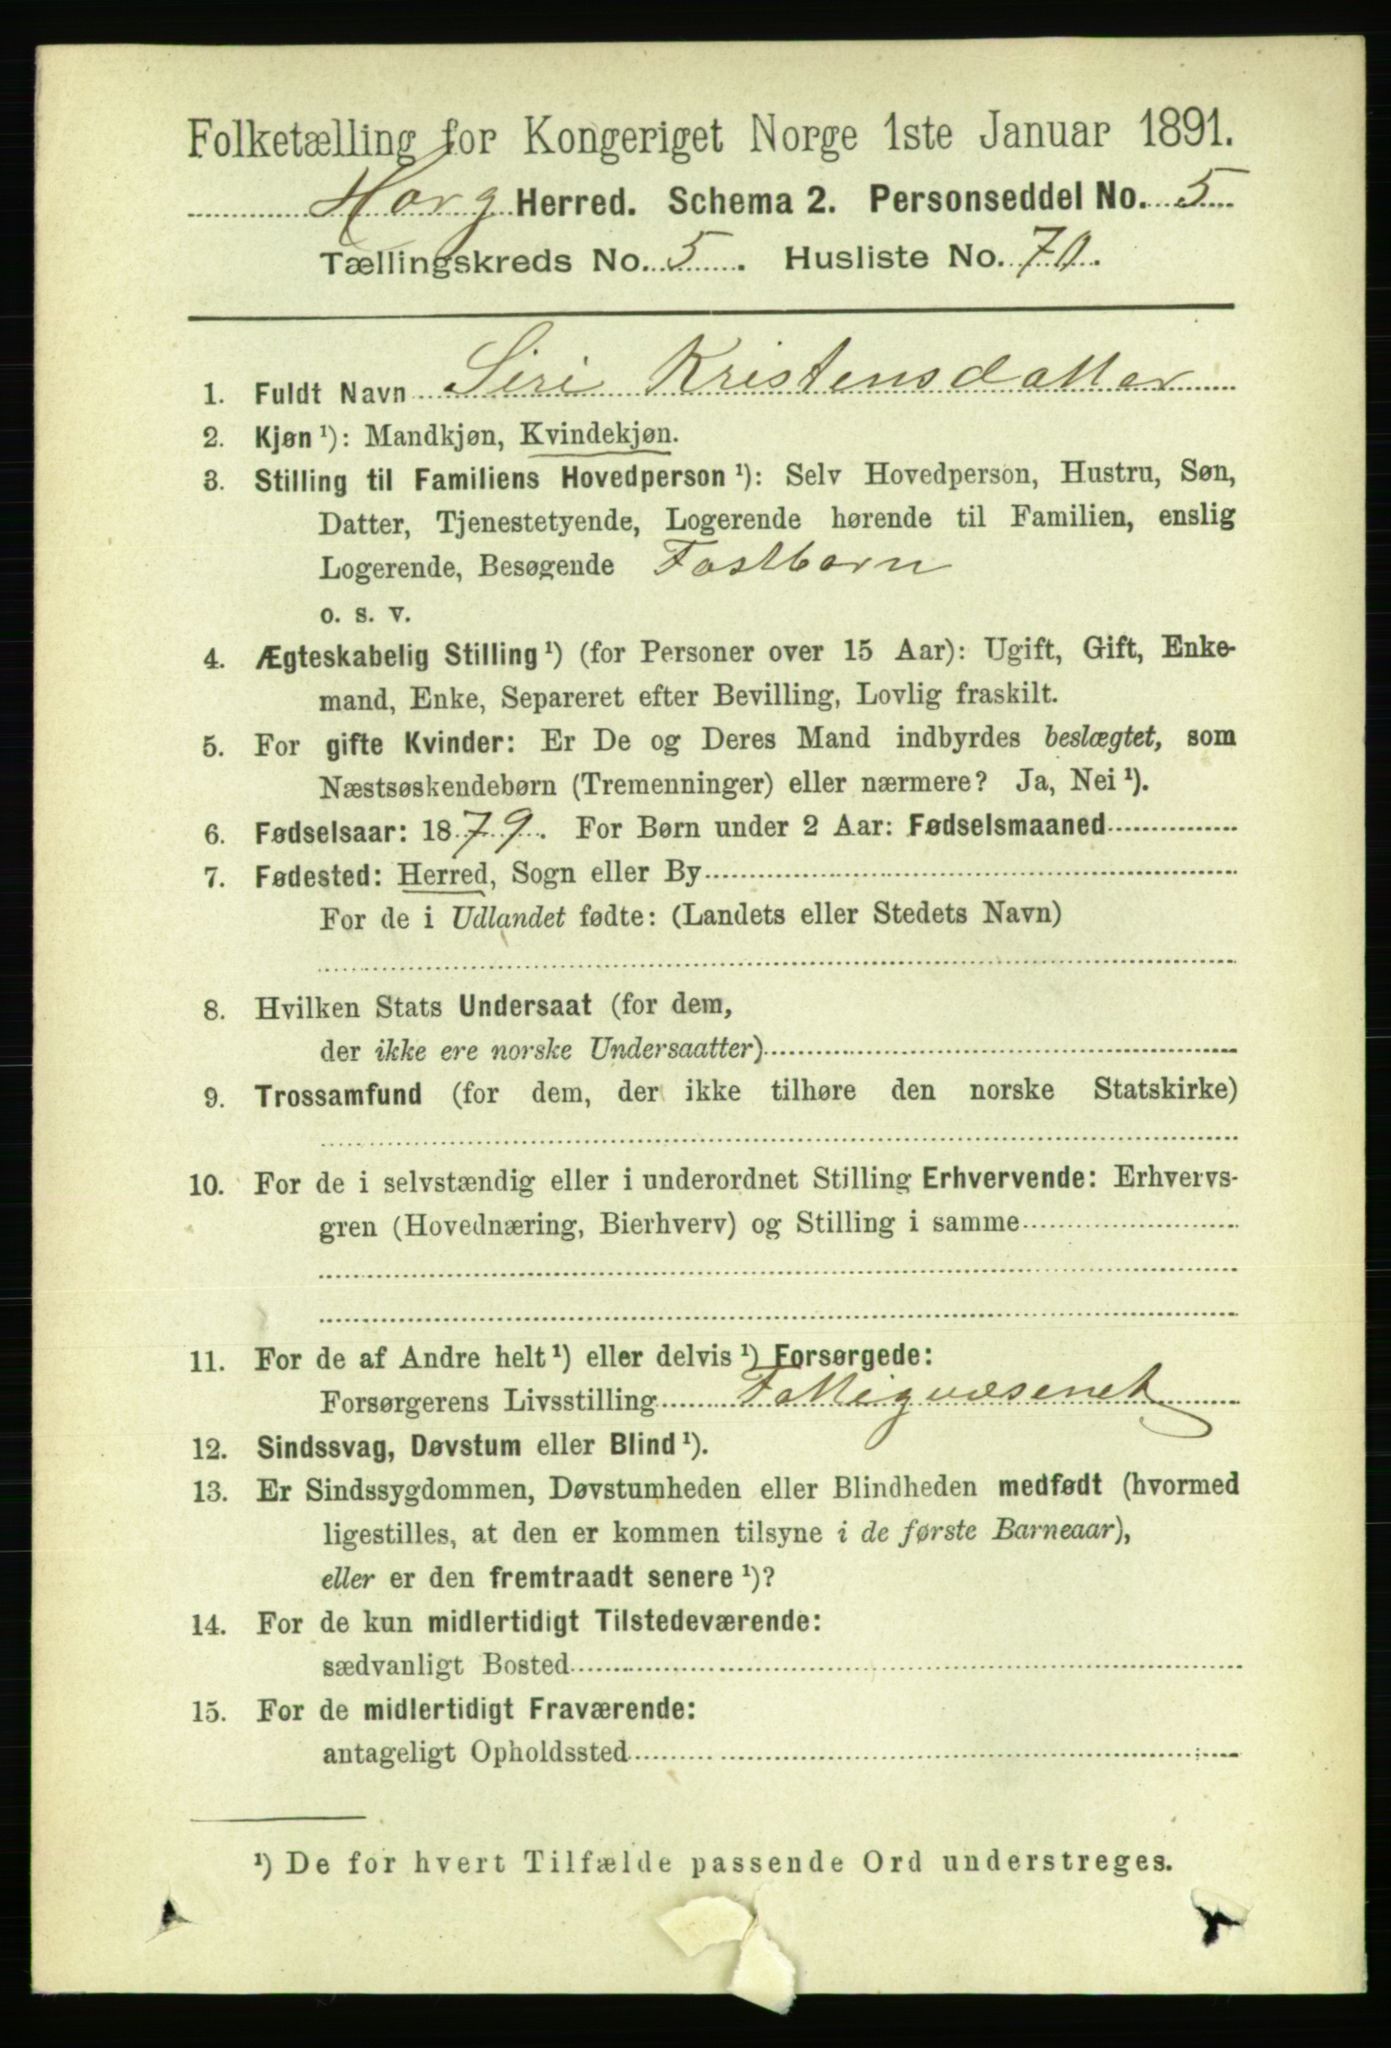 Folketælling for Kongeriget Norge 1ste Januar 1891.
Horg Herred. Schema 2. Personseddel No. 5
Tællingskreds No. 5. Husliste No. 70.
1. Fuldt Navn Siri Kristensdatter
2. Kjøn ¹): Mandkjøn, Kvindekjøn.
3. Stilling til Familiens Hovedperson ¹): Selv Hovedperson, Hustru, Søn,
Datter, Tjenestetyende, Logerende hørende til Familien, enslig
Logerende, Besøgende Fostbarn
o. s. v.
4. Ægteskabelig Stilling ¹) (for Personer over 15 Aar): Ugift, Gift, Enke-
mand, Enke, Separeret efter Bevilling, Lovlig fraskilt.
5. For gifte Kvinder: Er De og Deres Mand indbyrdes beslægtet, som
Næstsøskendebørn (Tremenninger) eller nærmere? Ja, Nei ¹).
6. Fødselsaar: 1879. For Børn under 2 Aar: Fødselsmaaned
7. Fødested: Herred, Sogn eller By
For de i Udlandet fødte: (Landets eller Stedets Navn)
8. Hvilken Stats Undersaat (for dem,
der ikke ere norske Undersaatter)
9. Trossamfund (for dem, der ikke tilhøre den norske Statskirke)
10. For de i selvstændig eller i underordnet Stilling Erhvervende: Erhvervs-
gren (Hovednæring, Bierhverv) og Stilling i samme
11. For de af Andre helt ¹) eller delvis ¹) Forsørgede:
Forsørgerens Livsstilling Fattigvæsenet
12. Sindssvag, Døvstum eller Blind ¹).
13. Er Sindssygdommen, Døvstumheden eller Blindheden medfødt (hvormed
ligestilles, at den er kommen tilsyne i de første Barneaar),
eller er den fremtraadt senere ¹)?
14. For de kun midlertidigt Tilstedeværende:
sædvanligt Bosted
15. For de midlertidigt Fraværende:
antageligt Opholdssted
¹) De for hvert Tilfælde passende Ord understreges.